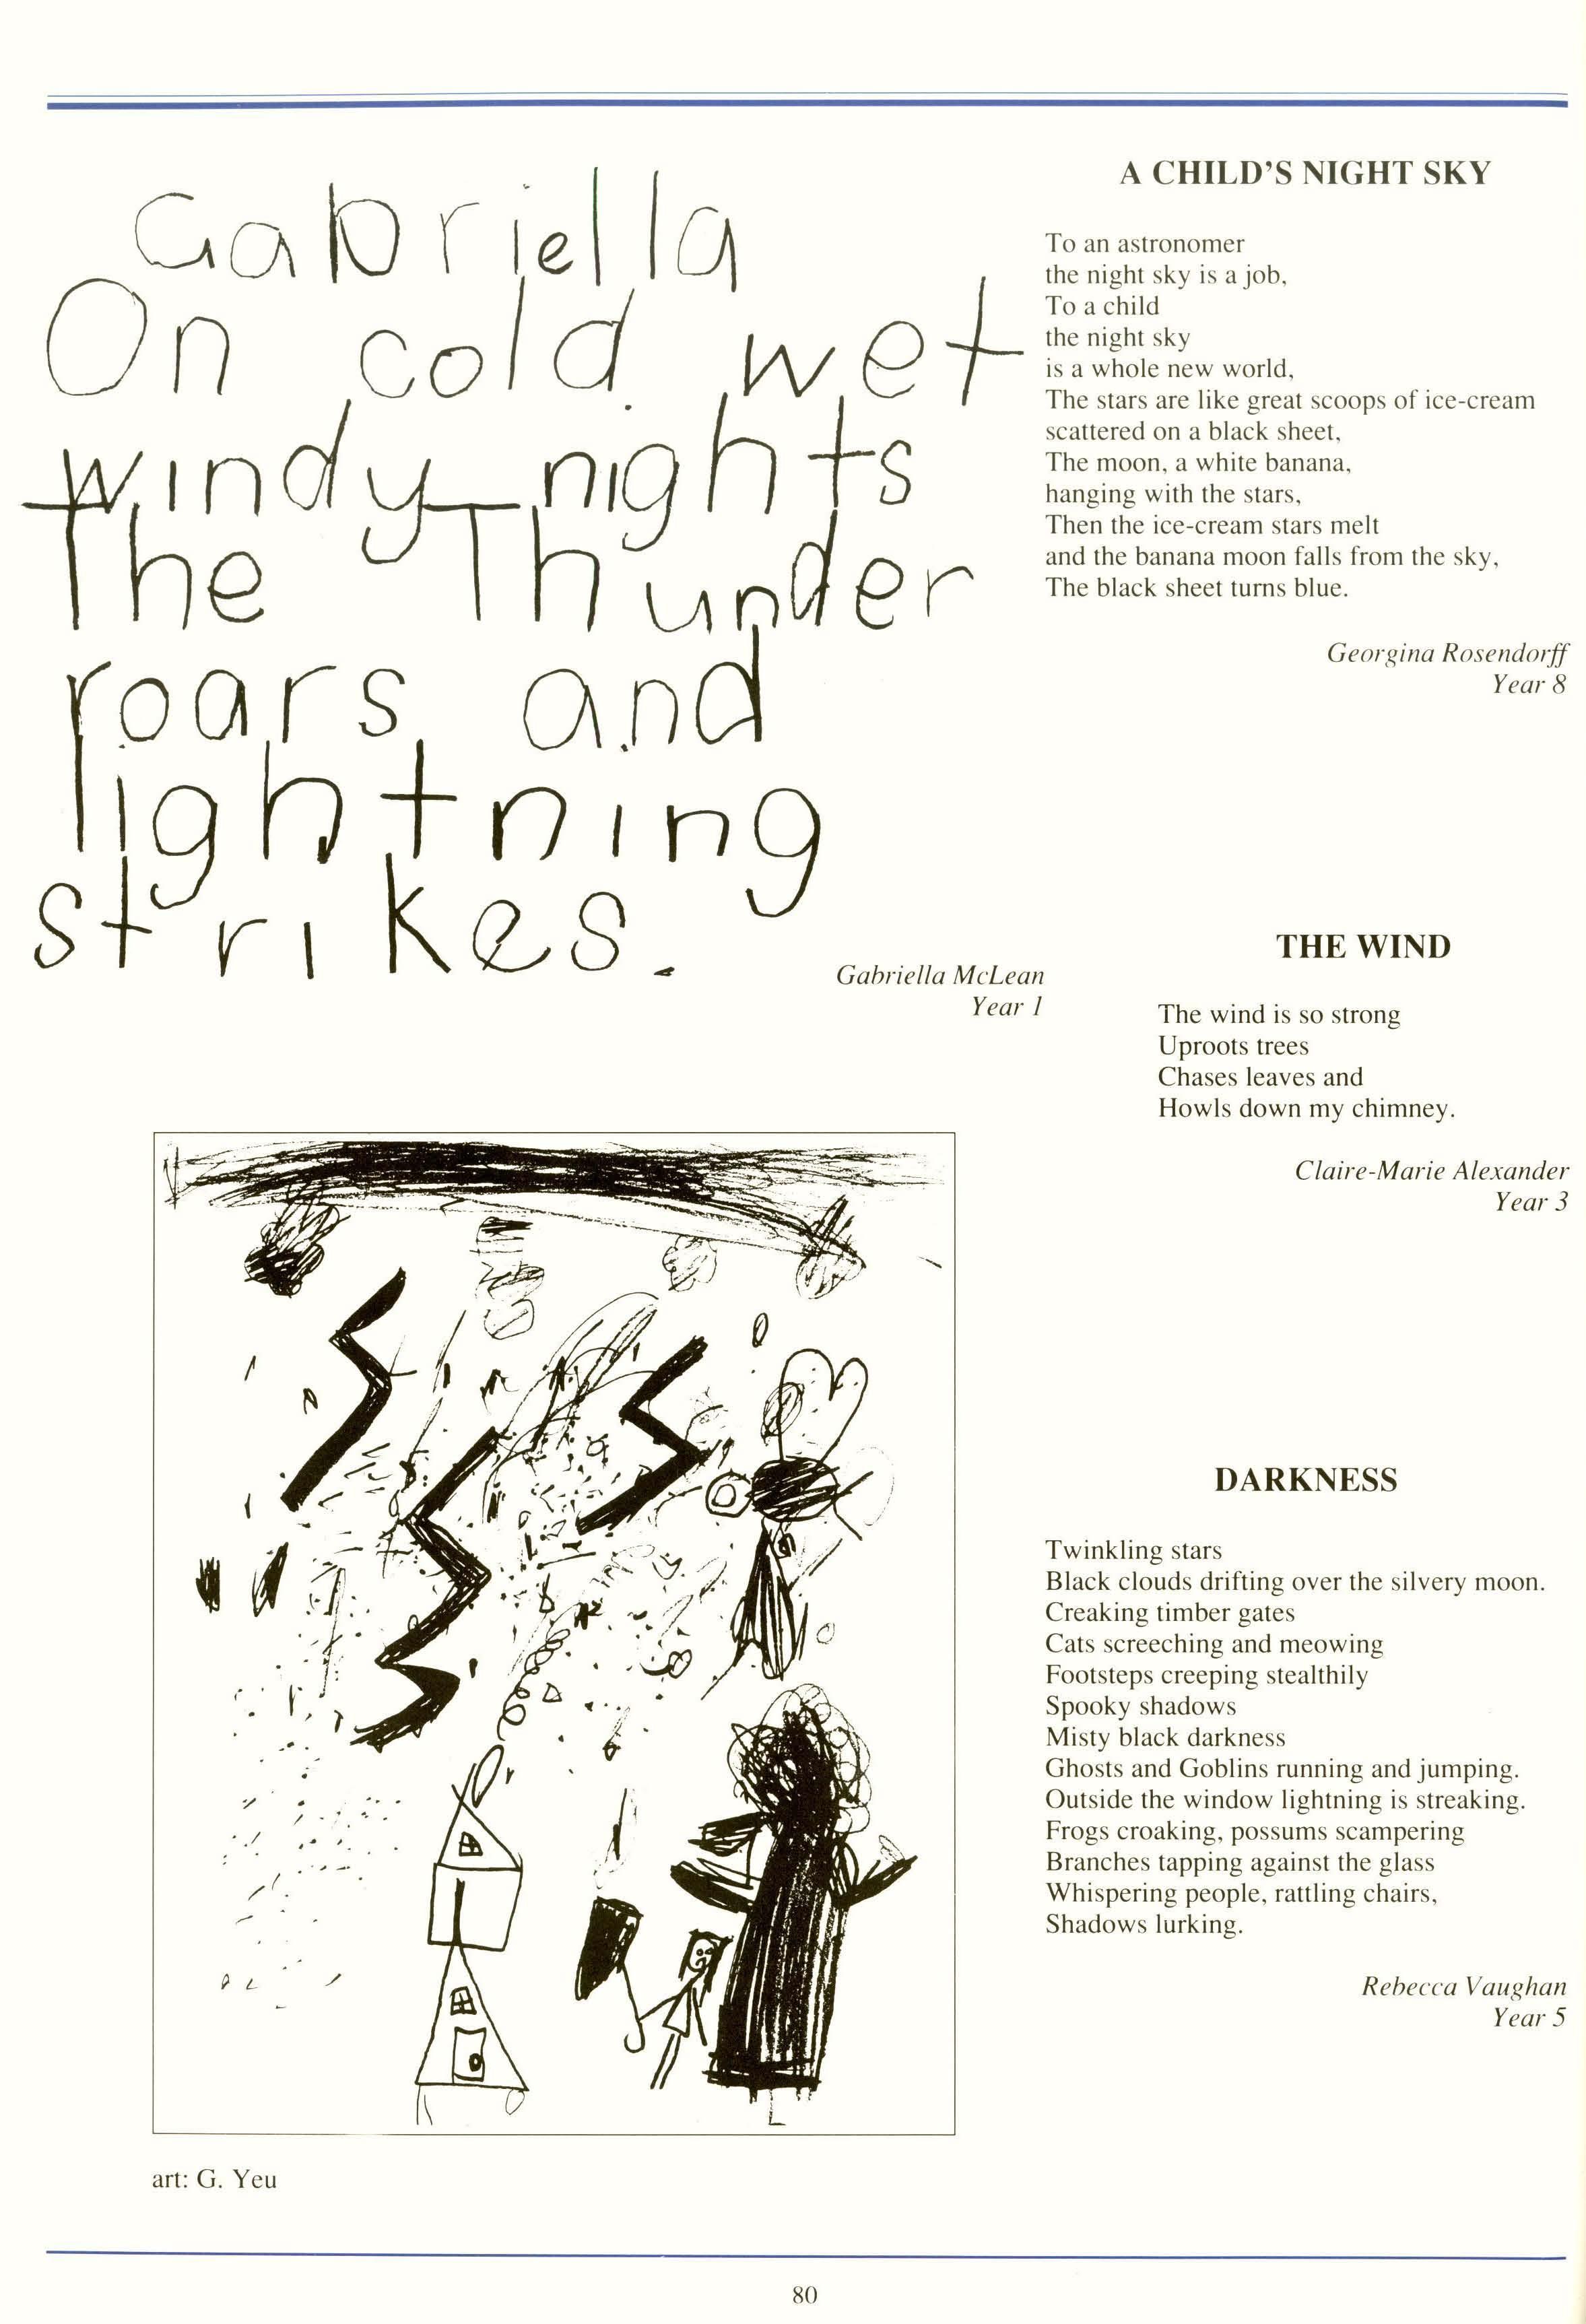 Gabriella
On cold wet
windy nights
The Thunder
roars and
lightning
strikes.
Gabriella McLean
Year 1
art: G. Yeu
A CHILD'S NIGHT SKY
To an astronomer
the night sky is a job,
To a child
the night sky
is a whole new world,
The stars are like great scoops of ice-cream
scattered on a black sheet,
The moon, a white banana,
hanging with the stars,
Then the ice-cream stars melt
and the banana moon falls from the sky,
The black sheet turns blue.
Georgina Rosendorff
Year 8
THE WIND
The wind is so strong
Uproots trees
Chases leaves and
Howls down my chimney.
Claire-Marie Alexander
Year 3
DARKNESS
Twinkling stars
Black clouds drifting over the silvery moon.
Creaking timber gates
Cats screeching and meowing
Footsteps creeping stealthily
Spooky shadows
Misty black darkness
Ghosts and Goblins running and jumping.
Outside the window lightning is streaking.
Frogs croaking, possums scampering
Branches tapping against the glass
Whispering people, rattling chairs,
Shadows lurking.
Rebecca Vaughan
Year 5
80